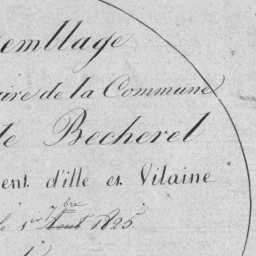 emblage
aire de la Commune
de Becherel
ent d'ille et Vilaine
le 1er 7bre 1825